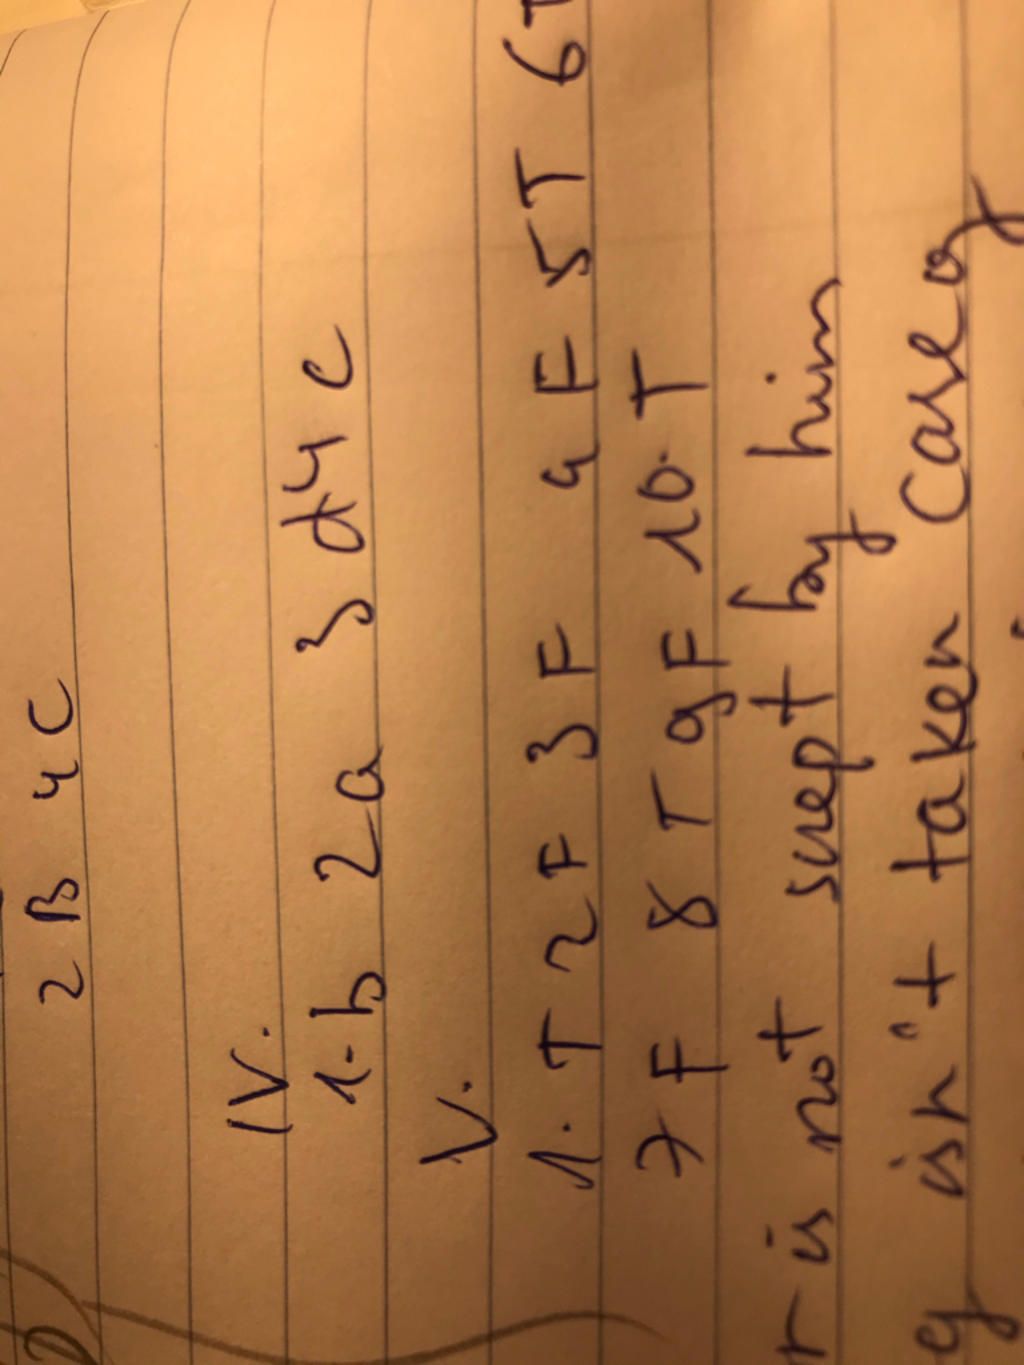 2 B 4 C
IV.
1-b 2a 3 d 4 c
V.
1. T 2 F 3 F 4 F 5 T 6T
7 F 8 T 9F 10. T
r is not swept by him
ey isn't taken